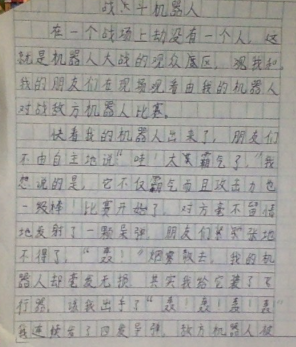 战斗机器人
在一个战场上却没有一个人，这
就是机器人大战的观众展区，观我和
我的朋友们在现场观看由我的机器人
对战敌方机器人比赛。
快看我的机器人出来了，朋友们
不由自主地说"哇！太霸气了，"我
想说的是，它不仅霸气而且攻击力也
一级棒！比赛开始了，对方毫不留情
地发射了一颗导弹，朋友们紧张地
不得了，"轰！"烟雾散去，我的机
器人却毫发无损，其实我给它装了飞
行器，该我出手了"轰！轰！轰！轰！"
我连续发了四发导弹，敌方机器人被